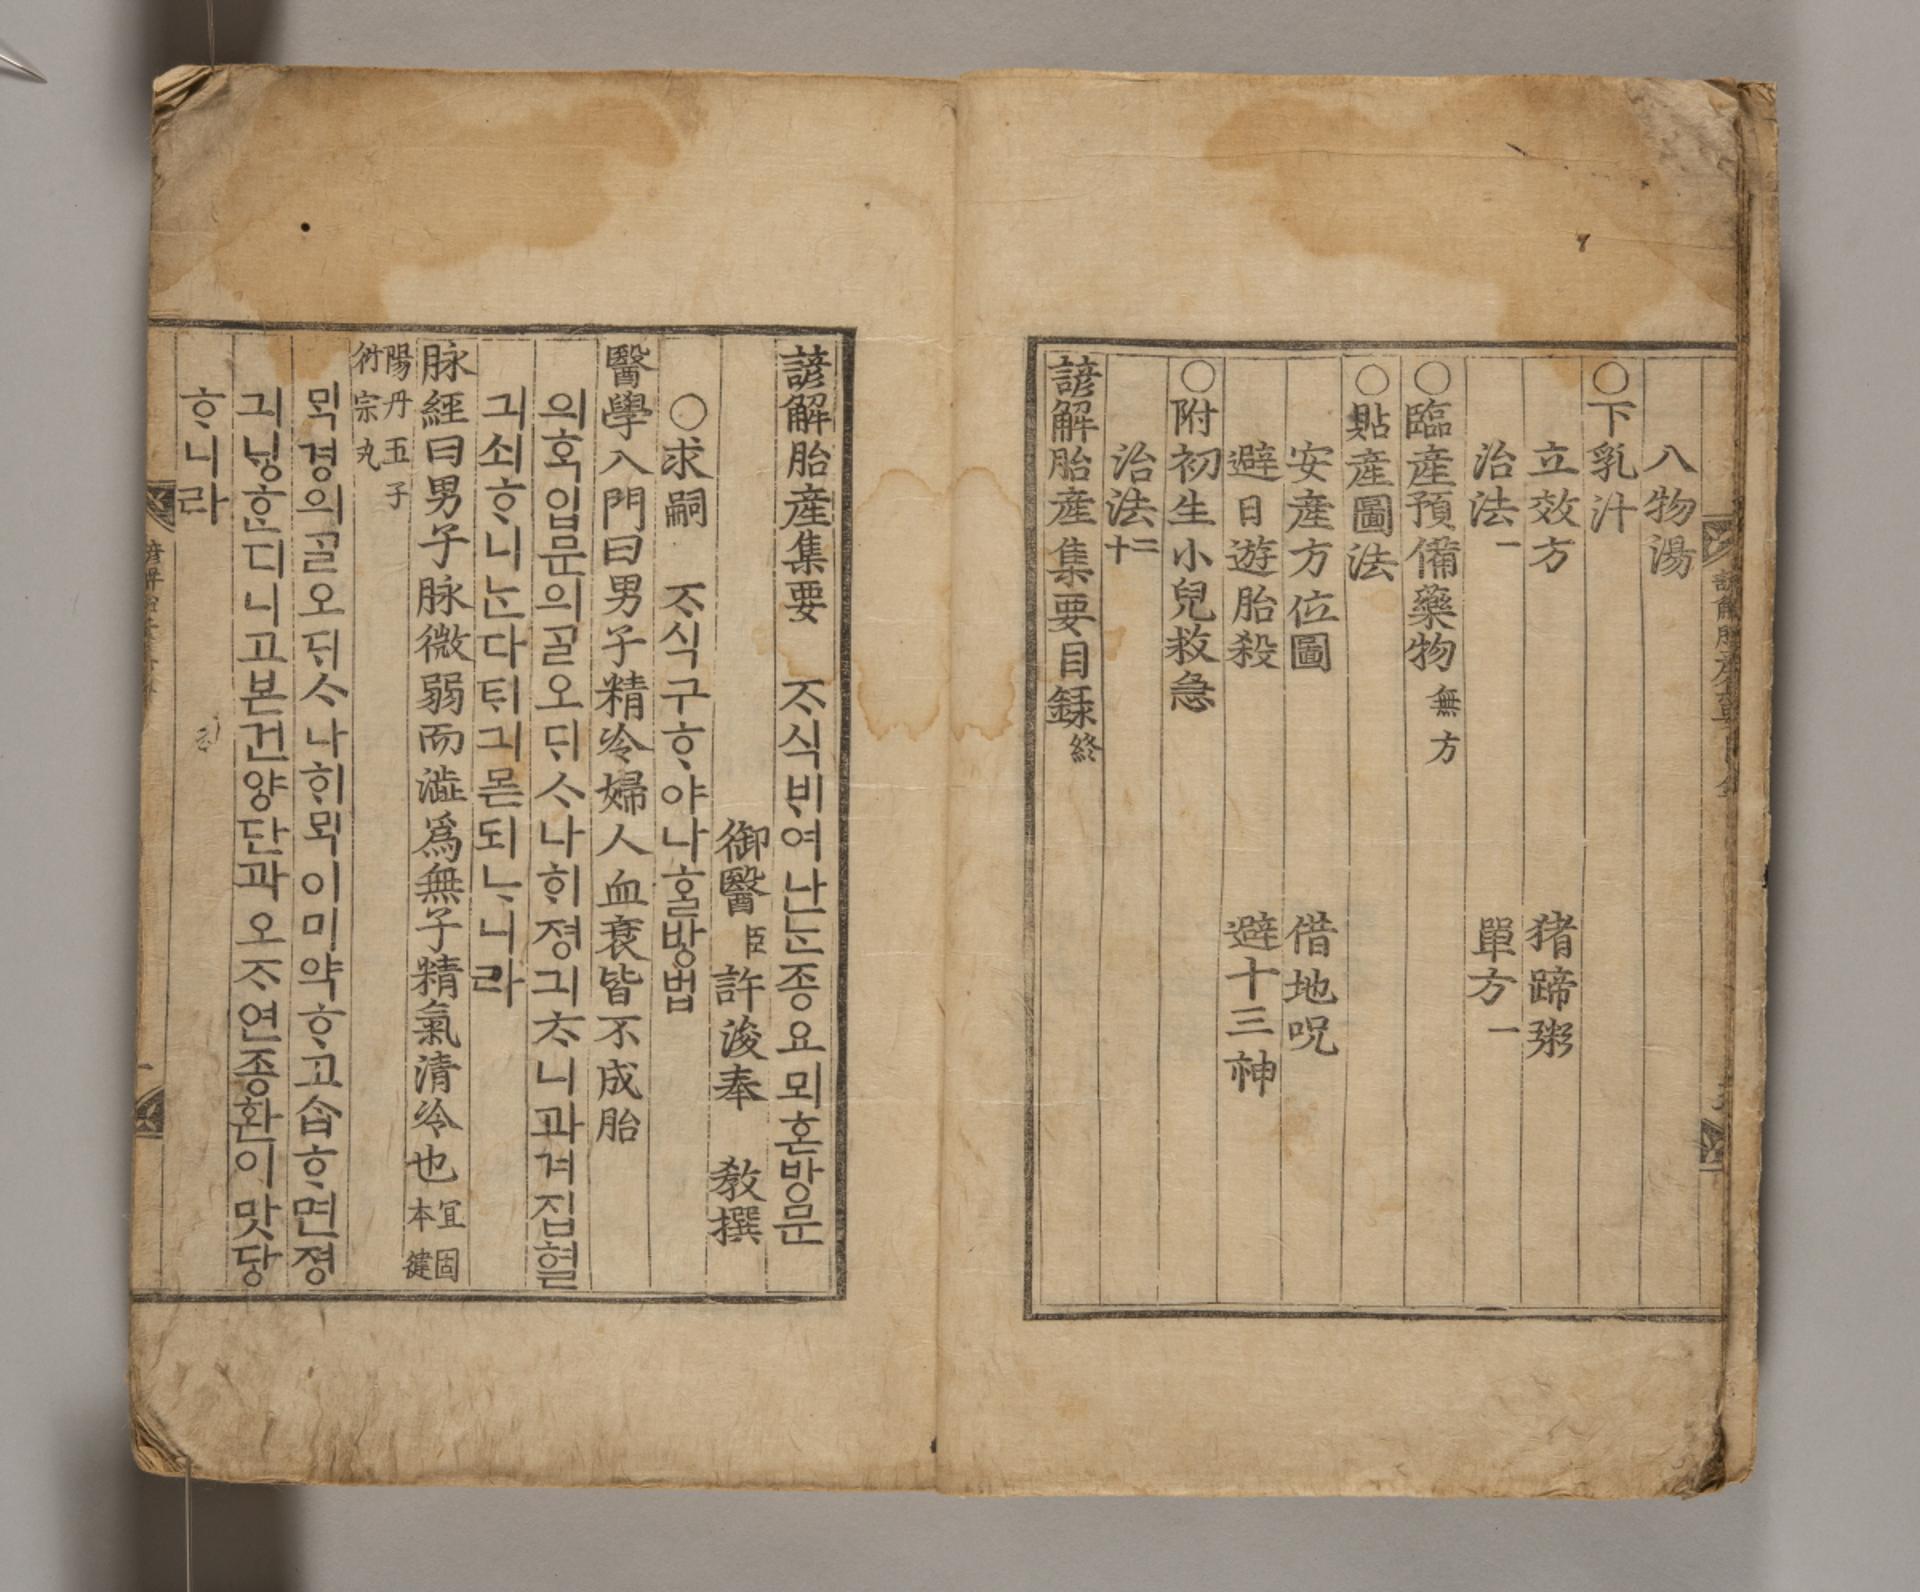 八物湯
○下乳汁
立效方 猪蹄粥
治法一 單方一
○臨産預備藥物 無方
○貼産圖法
安産方位圖 借地呪
避日遊胎殺 避十三神
○附初生小兒救急
治法二十
諺解胎産集要目録 終
諺解胎産集要 ᄌᆞ식ᄇᆡ여난ᄂᆞᆫ종요뫼혼방문
御醫臣許浚奉 敎撰
○求嗣 ᄌᆞ식구ᄒᆞ야나홀방법
醫學入門曰男子精冷婦人血衰皆不成胎
의혹입문의골오ᄃᆡᄉᆞ나ᄒᆡ졍긔ᄎᆞ니과겨집혈
긔쇠ᄒᆞ니ᄂᆞᆫ다ᄐᆡ긔몯되ᄂᆞ니라
脉經曰男子脉微弱而澁爲無子精氣清冷也 宜固本健
陽丹五子衍宗丸
ᄆᆡᆨ경의골오ᄃᆡᄉᆞ나ᄒᆡᄆᆡᆨ이미약ᄒᆞ고습ᄒᆞ면졍
긔닝ᄒᆞᆫ디니고본건양단과오ᄌᆞ연종환이맛당
ᄒᆞ니라